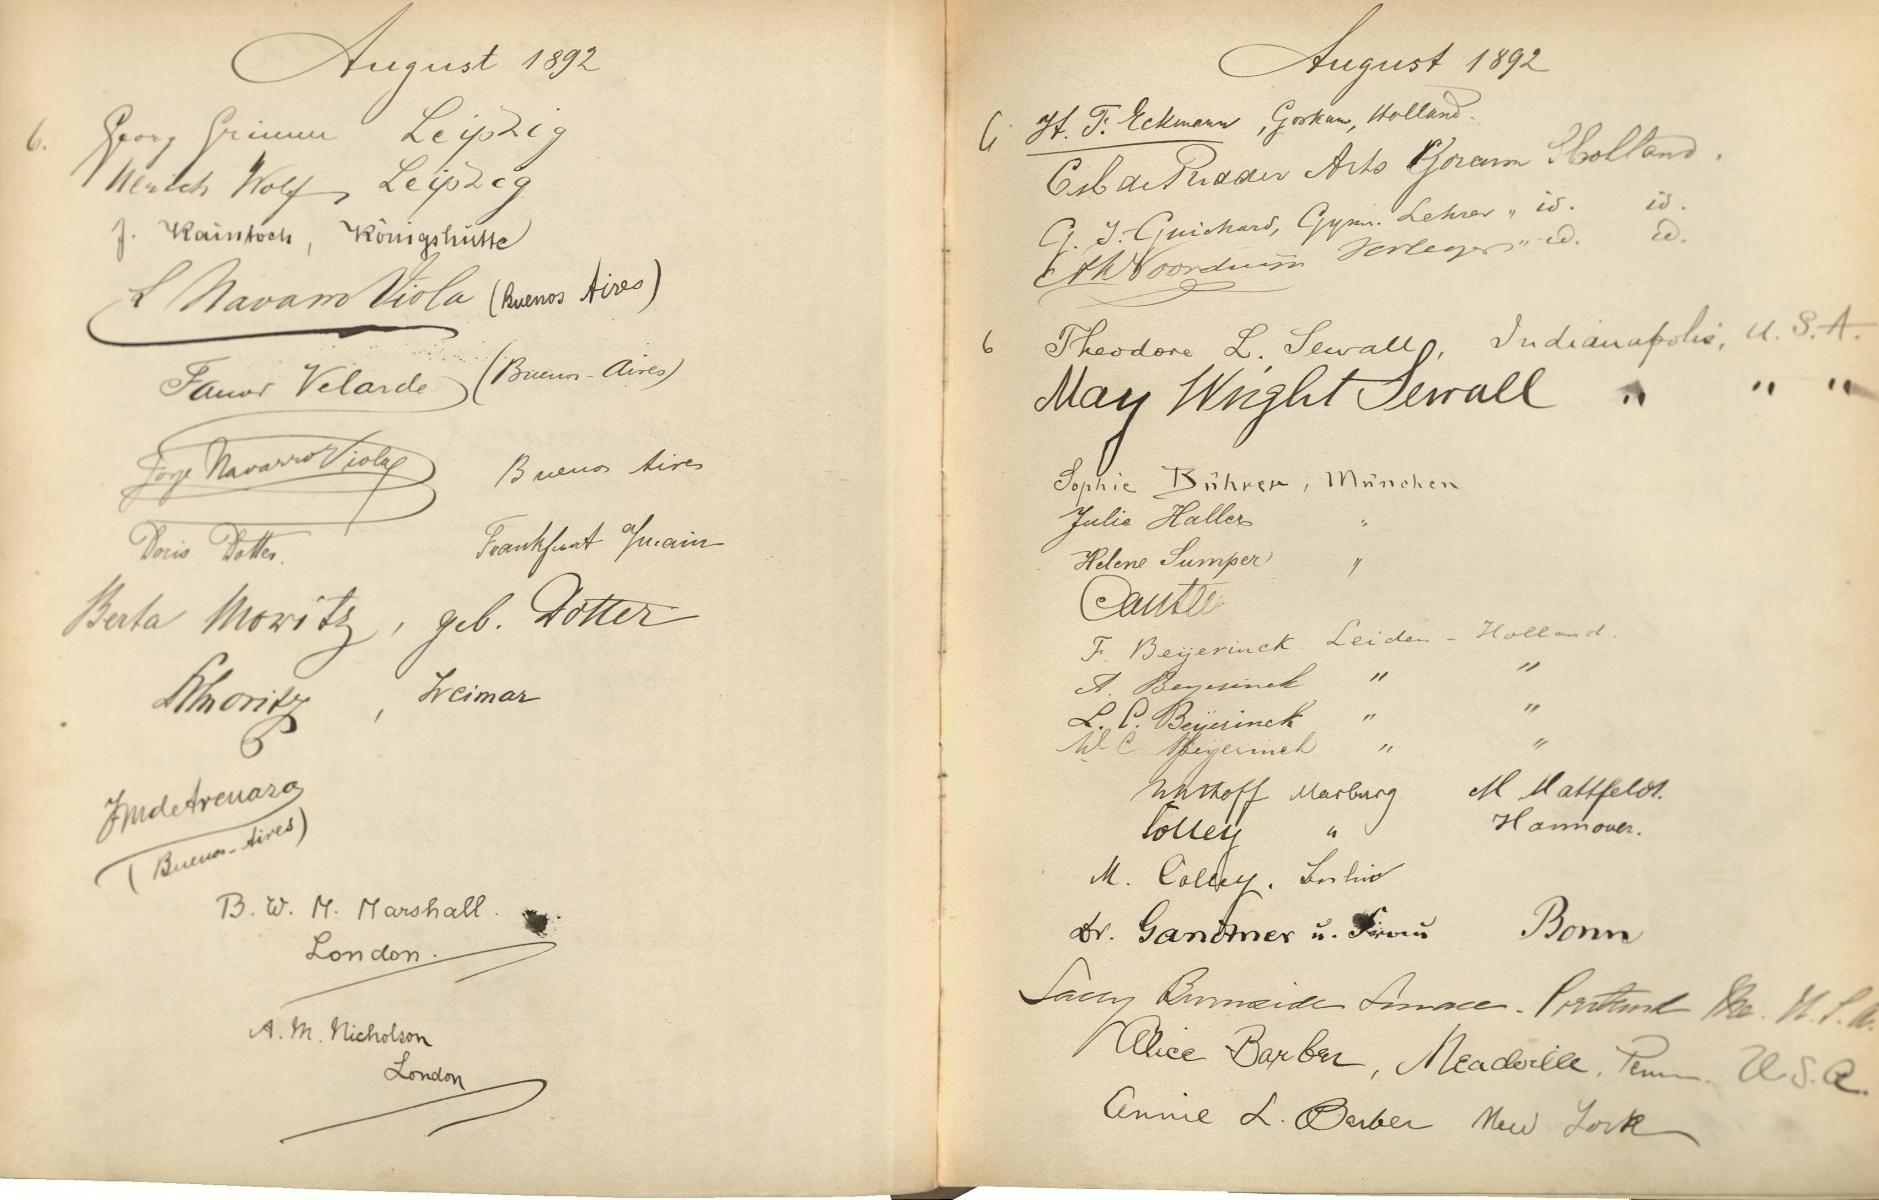 August 1892
6. Georg Grimm Leipzig
Ulrich Wolf, Leipzig
J. Kaintoch, Königshütte
L Navarro Viola (Buenos Aires)
Fanor Velarde (Buenos-Aires)
Jorge Navarro Viola Buenos Aires
Doris Dotter. Frankfurt a/main
Berta Moritz, geb. Dotter
Moritz, Weimar
(Buenos-Aires)
B. W. M. Marshall.
London.
A. M. Nicholson
London
August 1892
6 H. F. Eckmann, Holland.
Arts Holland.
G. J. Guichard, Gymn. Lehrer " id. id.
Noorduijn Verleger " id. id.
6 Theodore L. Sewall, Indianapolis, U.S.A.
May Wright Sewall " " "
Sophie Bührer, München
Julie Haller "
Helene Sumper "
F. Beijerinck Leiden - Holland.
A. Beyerinck " "
L. C. Beijerinck " "
W C Beijerinck " "
Marburg M Mattfeldt.
Colley " Hannover.
M. Colley. Berlin
Dr. Gandtner u. Frau Bonn
Burnside Portland Me. U.S.A.
Alice Barber, Meadville, Penn. U.S.A.
Annie L. Barber New York